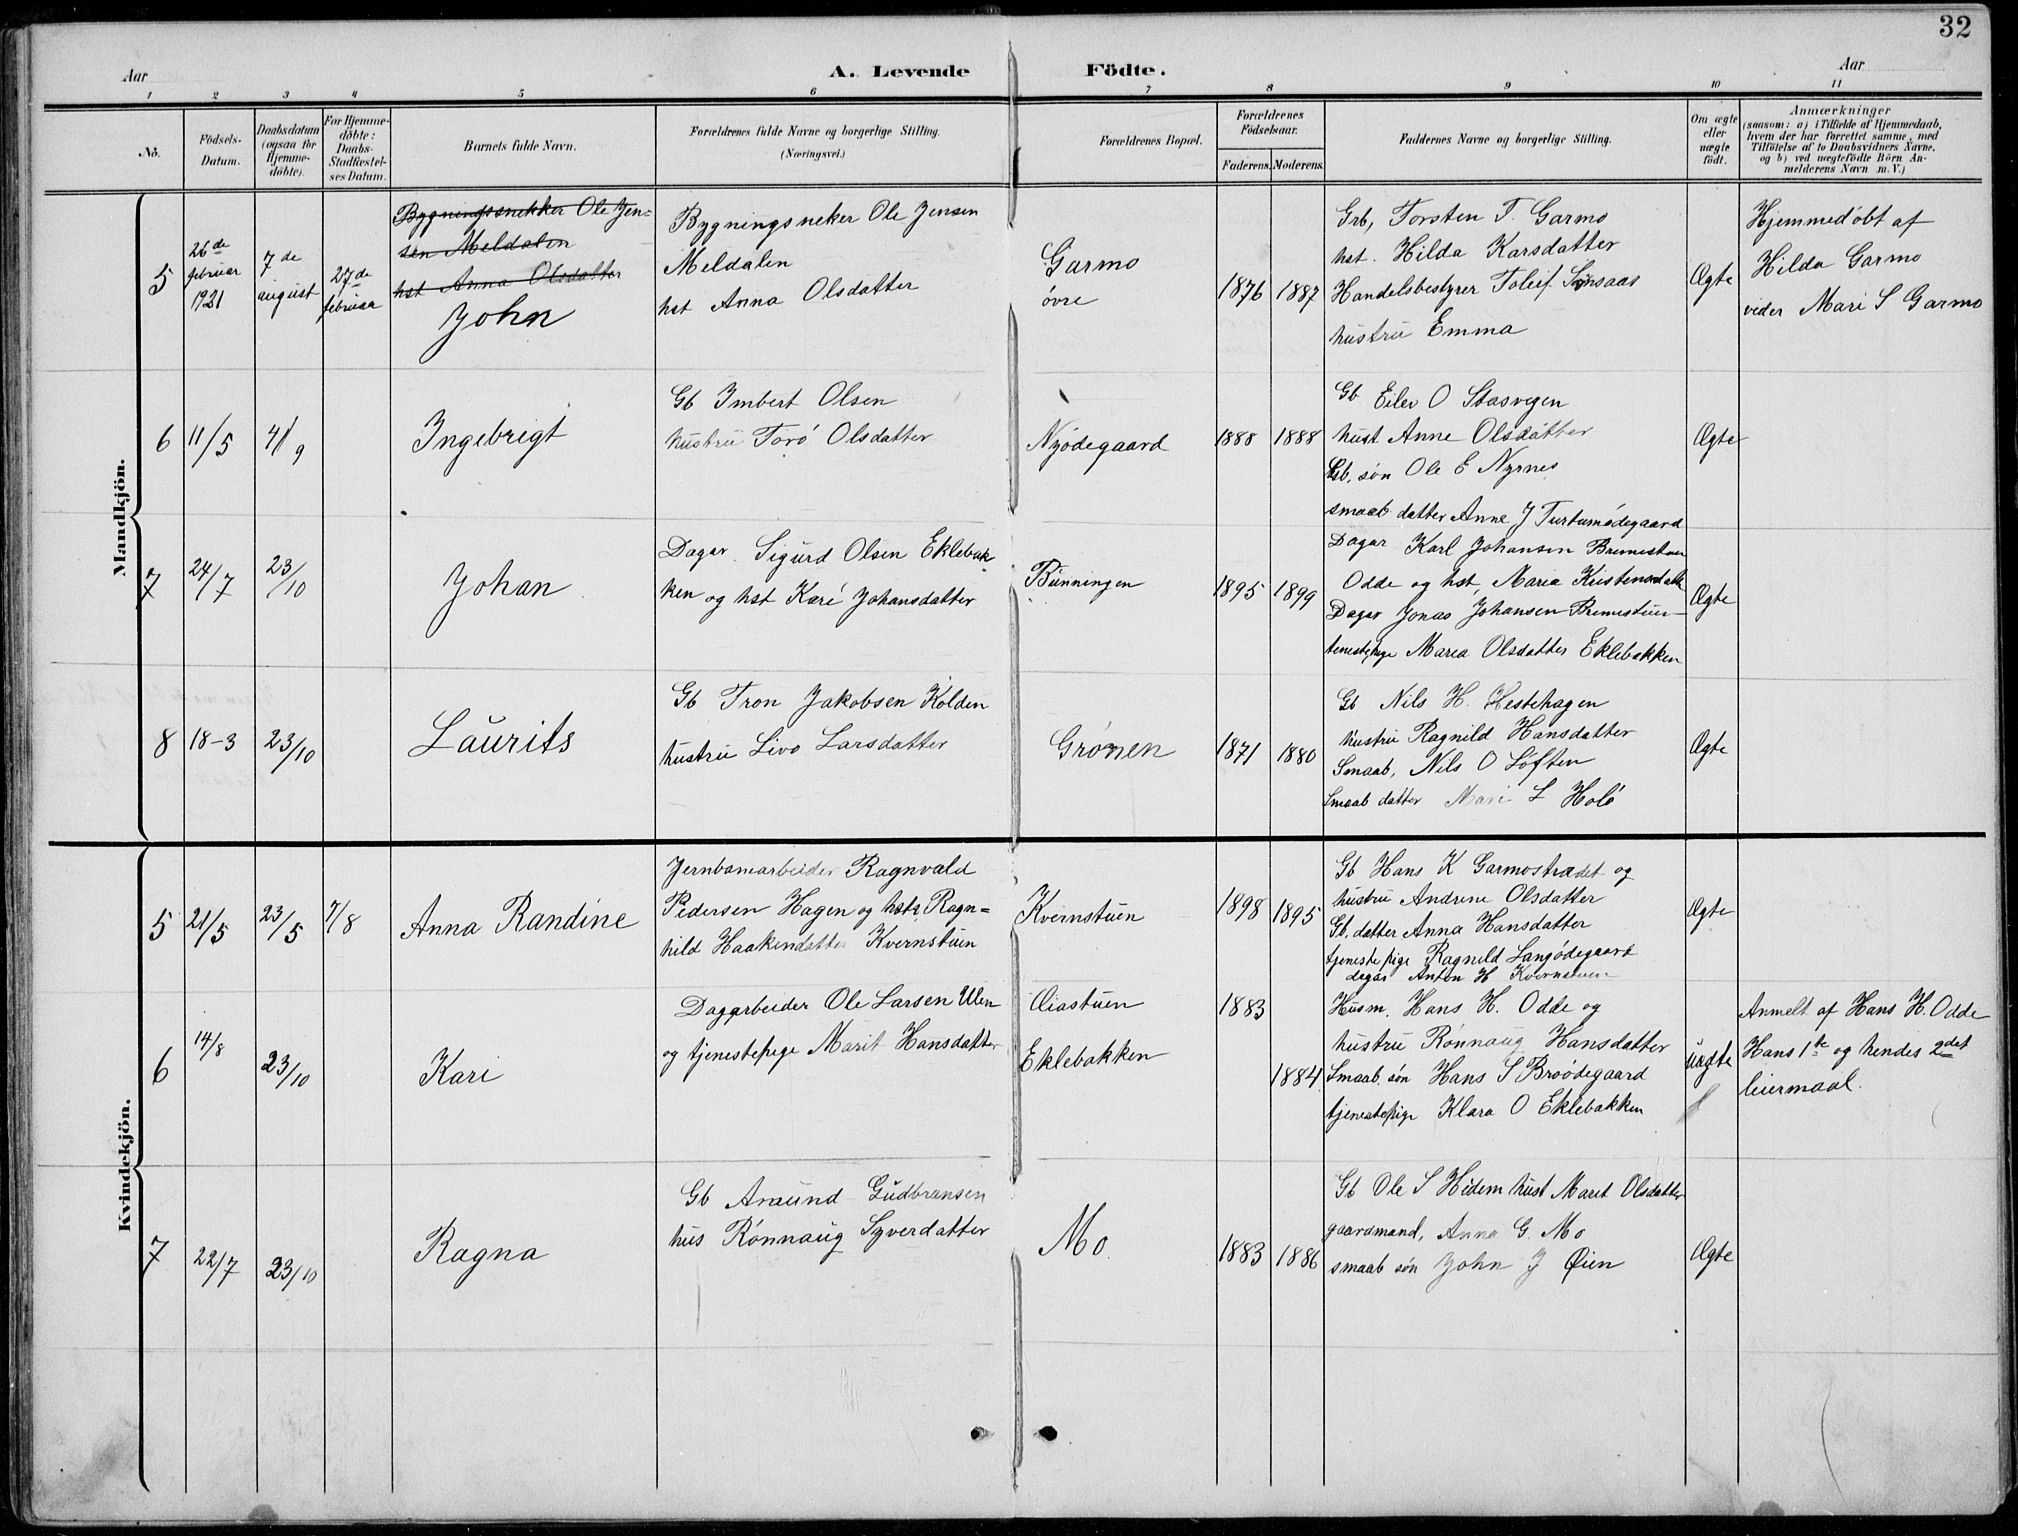 32
Aar
A. Levende Födte.
Aar
1 2 3 4 5 6 7 8 9 10 11
No.
Födsels-
Datum.
Daabsdatum
(ogsaa for
Hjemme-
döbte).
For Hjemme-
döbte:
Daabs-
Stadfæstel-
ses Datum.
Barnets fulde Navn.
Forældrenes fulde Navne og borgerlige Stilling.
(Næringsvei.)
Forældrenes Bopæl.
Forældrenes
Födselsaar.
Faderens. Moderens.
Faddernes Navne og borgerlige Stilling.
Om ægte
eller
uægte
födt.
Anmærkninger
(saasom: a) i Tilfælde af Hjemmedaab,
hvem der har forrettet samme, med
Tilföielse af to Daabsvidners Navne,
og b) ved uægtefödte Börn An-
melderens Navn m. V.)
Mandkjön.
5
26de
februar
1921
7de
august
27de
februar
Bygningssnekker Ole Jen=
sen Meldalen
hst Anna Olsdatter
John
Bygningsneker Ole Jensen
Meldalen
hst Anna Olsdatter
Garmo
øvre
1876
1887
Grb, Torsten T. Garmo
hst. Hilda Karsdatter
Handelsbestyrer Toleif
hustru Emma
Ægte
Hjemmedøbt af
Hilda Garmo
vider Mari S Garmo
6
11/5
4/9
Ingebrigt
Gb Imbert Olsen
hustru Torø Olsdatter
Nyødegaard
1888
1888
Gb Eilev O Stasvegen
hust Anne Olsdatter
Gb. søn Ole E Nyrnes
smaab datter Anne J Turtumødegaard
Ægte
7
24/7
23/10
Johan
Dagar. Sigurd Olsen Eklebak-
ken og hst Kari Johansdatter
Bunningen
1895
1899
Dagar Karl Johansen Bremestuen
Odde og hst, Maria Kristensdatt
Dagar Jonas Johansen Bremestuen
tenestepige Marea Olsdatter Eklebakken
Ægte
8
18-3
23/10
Laurits
Gb Tron Jakobsen Kolden
hustru Livo Larsdatter
Grønen
1871
1880
Gb Nils H. Hestehagen
hustru Ragnild Hansdatter
Smaab, Nils O Løften
Smaab datter Mari L Holø
Ægte
Kvindekjön.
5
21/5
23/5
7/8
Anna Randine
Jernbanearbeider Ragnvald
Pedersen Hagen og hst Ragn=
hild Haakendatter Kvernstuen
Kvernstuen
1898
1895
Gb Hans K Garmostrædet og
hustru Andrine Olsdatter
Gb. datter Anna Hansdatter
tjeneste pige Ragnild Langødegaard
dagar Anton H Kvernstuen
Ægte
6
14/8
23/10
Kari
Dagarbeider Ole Larsen Ulen
og tjenestepige Marit Hansdatter
Øiastuen
Eklebakken
1883
1884
Husm. Hans H. Odde og
hustru Rønnaug Hansdatter
Smaab. søn Hans S Broødegaard
tjenestepige Klara O Eklebakken
uægte
Anmelt af Hans H. Odde
Hans 1te og hendes 2det
leiermaal.
7
22/7
23/10
Ragna
Gb Amund Gudbransen
hus Rønnaug Syverdatter
Mo.
1883
1886
Gb Ole S Hidem hust Marit Olsdatter
gaardmand, Anna G. Mo
smaab søn John J Øien
Ægte